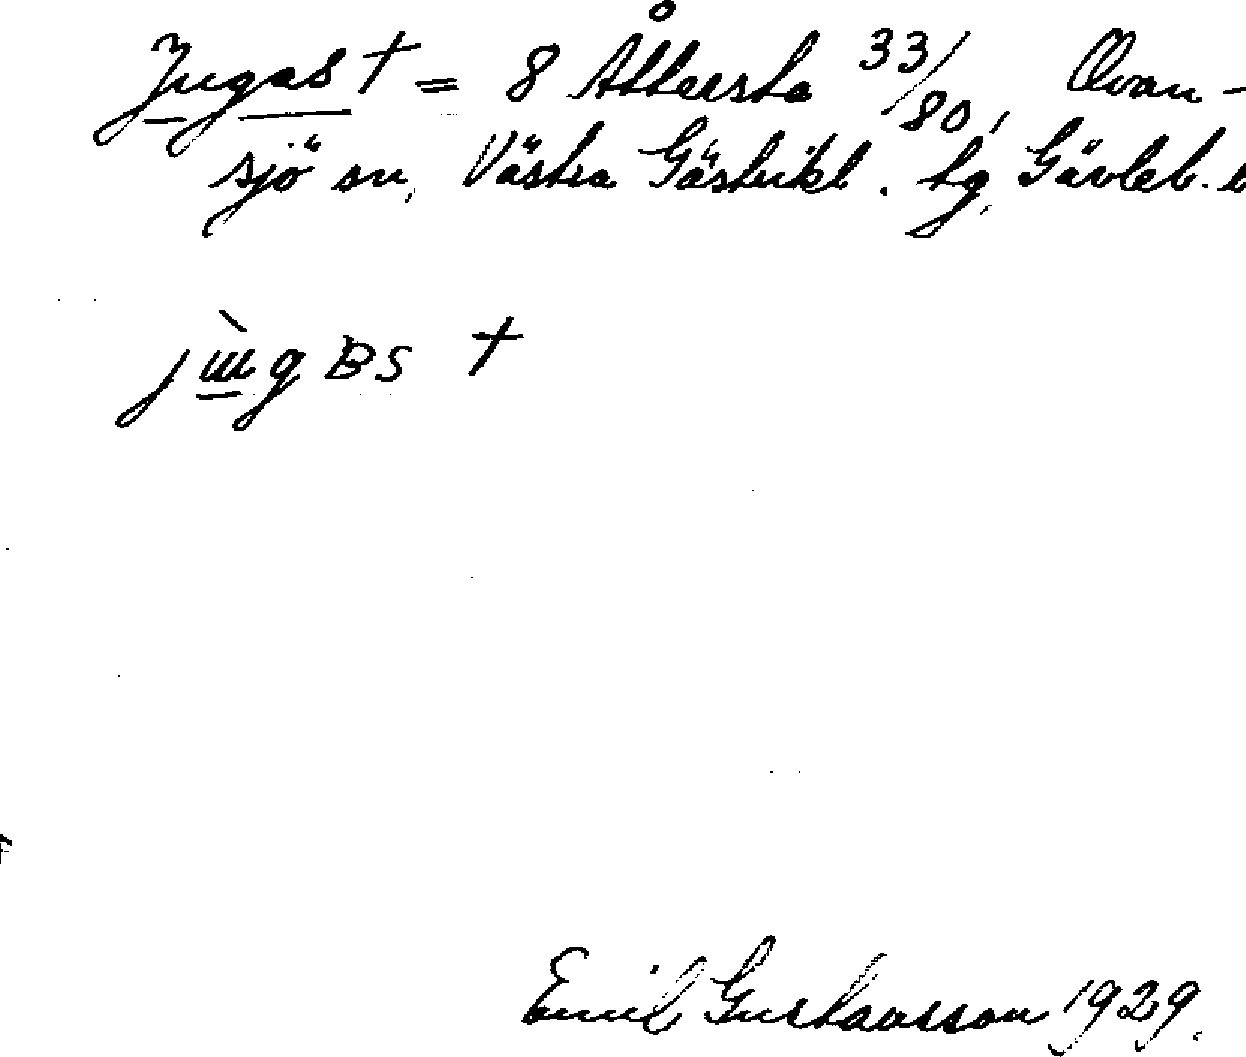 Jugas † = 8 Åttersta 33/80, Ovan-
sjö sn, Västra Gästrikl. tg, Gävleb.
jùgBS †
Emil Gustavsson 1929.